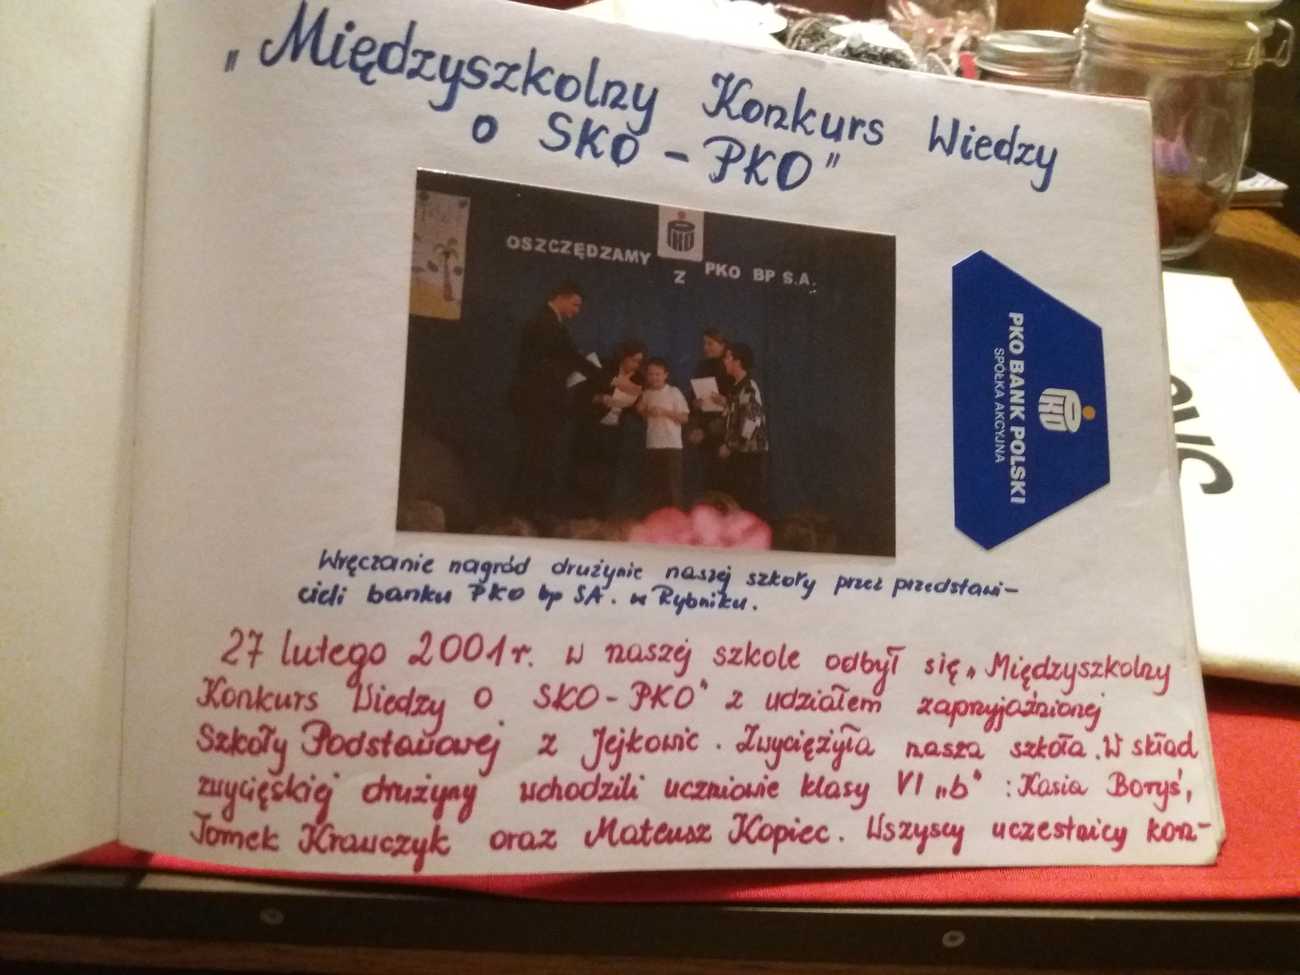 „Międzyszkolny Konkurs Wiedzy
o SKO - PKO"
OSZCZĘDZAMY
Z
PKO BP S.A.
PKO
PKO BANK POLSKI
SPÓŁKA AKCYJNA
Wręczanie nagród drużynie naszej szkoły przez przedstawi-
cieli banku PKO bp SA. w Rybniku.
27 lutego 2001r. w naszej szkole odbył się „Międzyszkolny
Konkurs Wiedzy o SKO-PKO" z udziałem zaprzyjaźnionej
Szkoły Podstawowej z Jejkowic. Zwyciężyła nasza szkoła. W skład
zwycięskiej drużyny wchodzili uczniowie klasy VI „b" : Kasia Boryś,
Tomek Krawczyk oraz Mateusz Kopiec. Wszyscy uczestnicy kon-